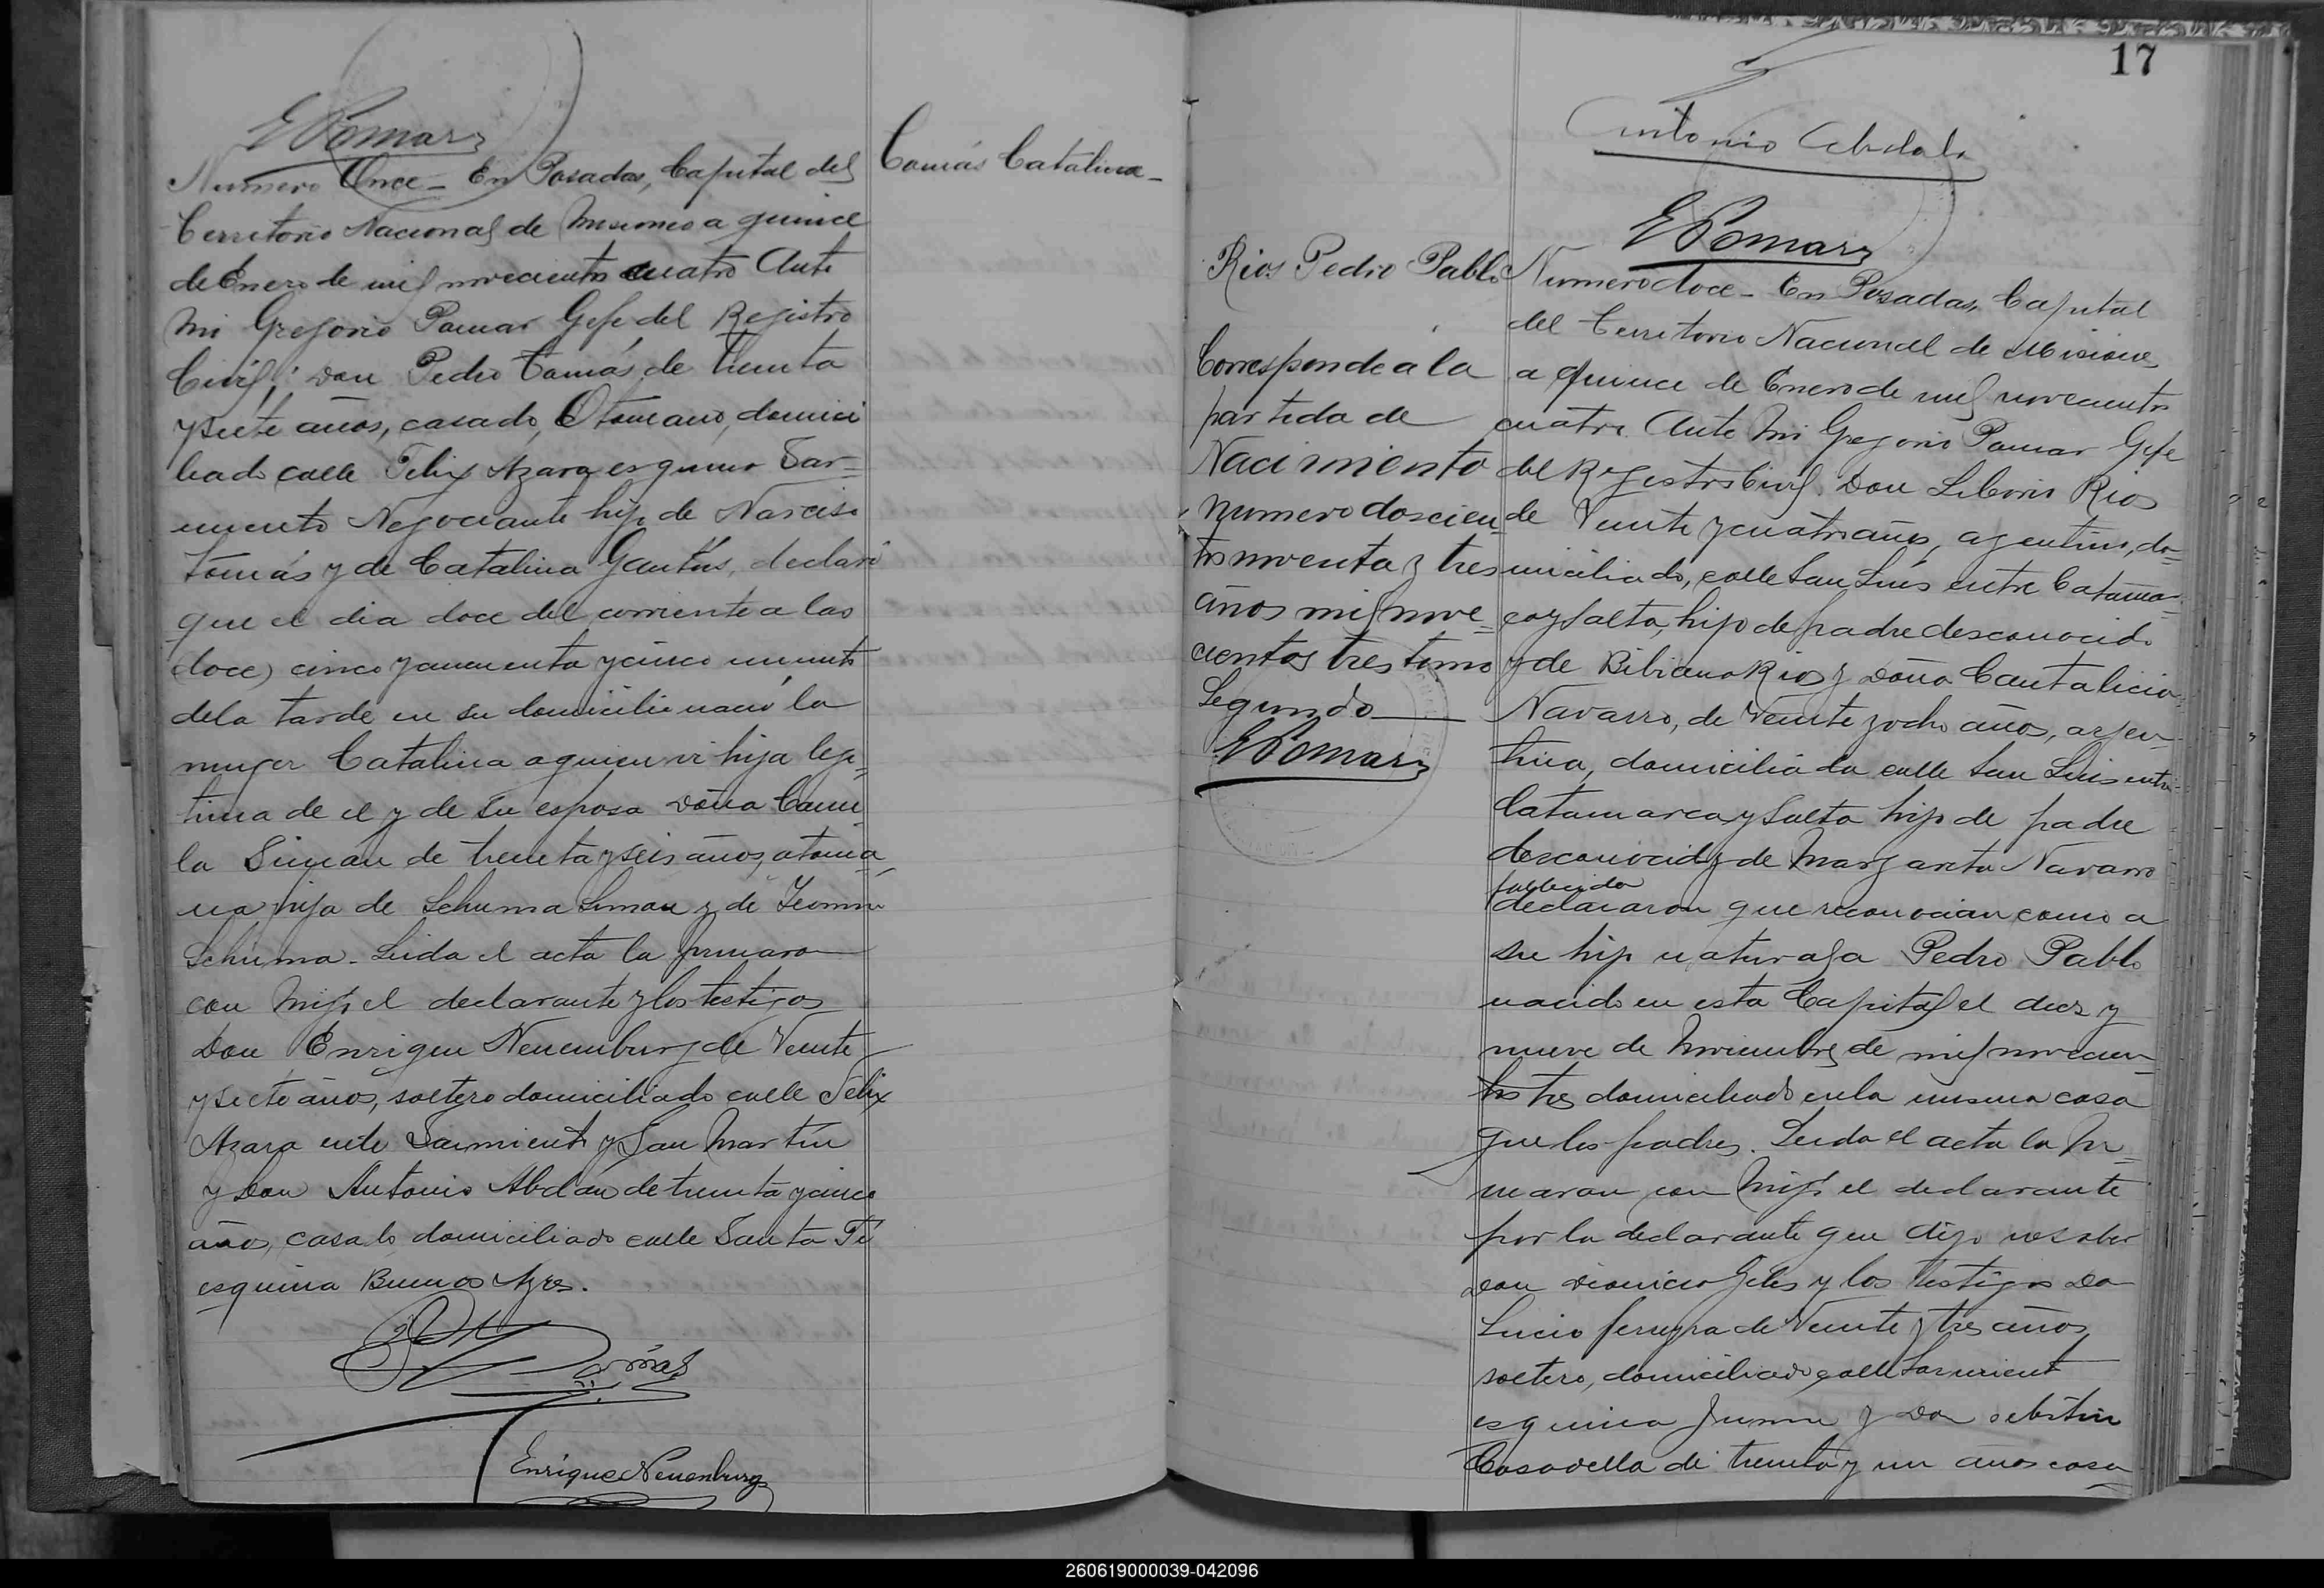 G Pomar
Numero Once - En Posadas, Capital del
Territorio Nacional de Misiones a quince
de Enero de mil novecientos cuatro Ante
mi Gregorio Pomar Gefe del Registro
Civil, Don Pedro Tomás de treinta
y siete años, casado, Otomano, domici
liado calle Felix Azara esquina Sar-
miento Negociante hijo de Narciso
Tomás y de Catalina Gantús, declaró
que el dia doce del corriente a las
(doce) cinco y cincuenta y cinco minutos
de la tarde en su domicilio nació la
muger Catalina a quien vi hija legi-
tima de el y de su esposa Doña Cami-
la Simán de treinta y seis años, otoma-
na hija de Schuma Simon y de
Schuma. Leida el acta la firmaron
con migo el declarante y los testigos
Don Enrique Nenemburg de Veinte
y siete años, soltero domiciliado calle Felix
Azara entre Sarmiento y San Martin
y Don Antonio Abdán de treinta y cinco
años, casado domiciliado calle Santa Fé
esquina Buenos Ayres.
Tomás
Enrique Nenenburg
Tomás Catalina -
17
Antonio Abdala
G Pomar
Rios Pedro Pablo
Corresponde a la
partida de
Nacimiento
numero doscien-
tos noventa y tres
años mil nove-
cientos tres tomo
Segundo
G Pomar
Numero doce - En Posadas, Capital
del Territorio Nacional de Misiones
a quince de Enero de mil novecientos
cuatro. Ante mi Gregorio Pomar Gefe
del Registro Civil. Don Liborio Rios
de Veinte y cuatro años, agentino, do-
miciliado, calle San Luis entre Catamar-
ca y Salta, hijo de padre desconocido
y de Bibiana Rios y Doña Cantalicia
Navarro, de Veinte y ocho años, argen-
tina, domiciliada calle San Luis entre
Catamarca y Salta hija de padre
desconocido y de Margarita Navarro
fallecida
declararon que reconocian como a
su hijo natural a Pedro Pablo
nacido en esta Capital el diez y
nueve de Noviembre de mil novecien-
tos tres domiciliado en la misma casa
que los padres. Leida el acta la fir-
maron con migo el declarante
por la declarante que dijo no saber
Don Dionicio Giles y los testigos Don
Lucio ferreyra de Veinte y tres años
soltero, domiciliado calle Sarmiento
esquina Junin y Don
Casavella de treinta y un años casa-
260619000039-042096